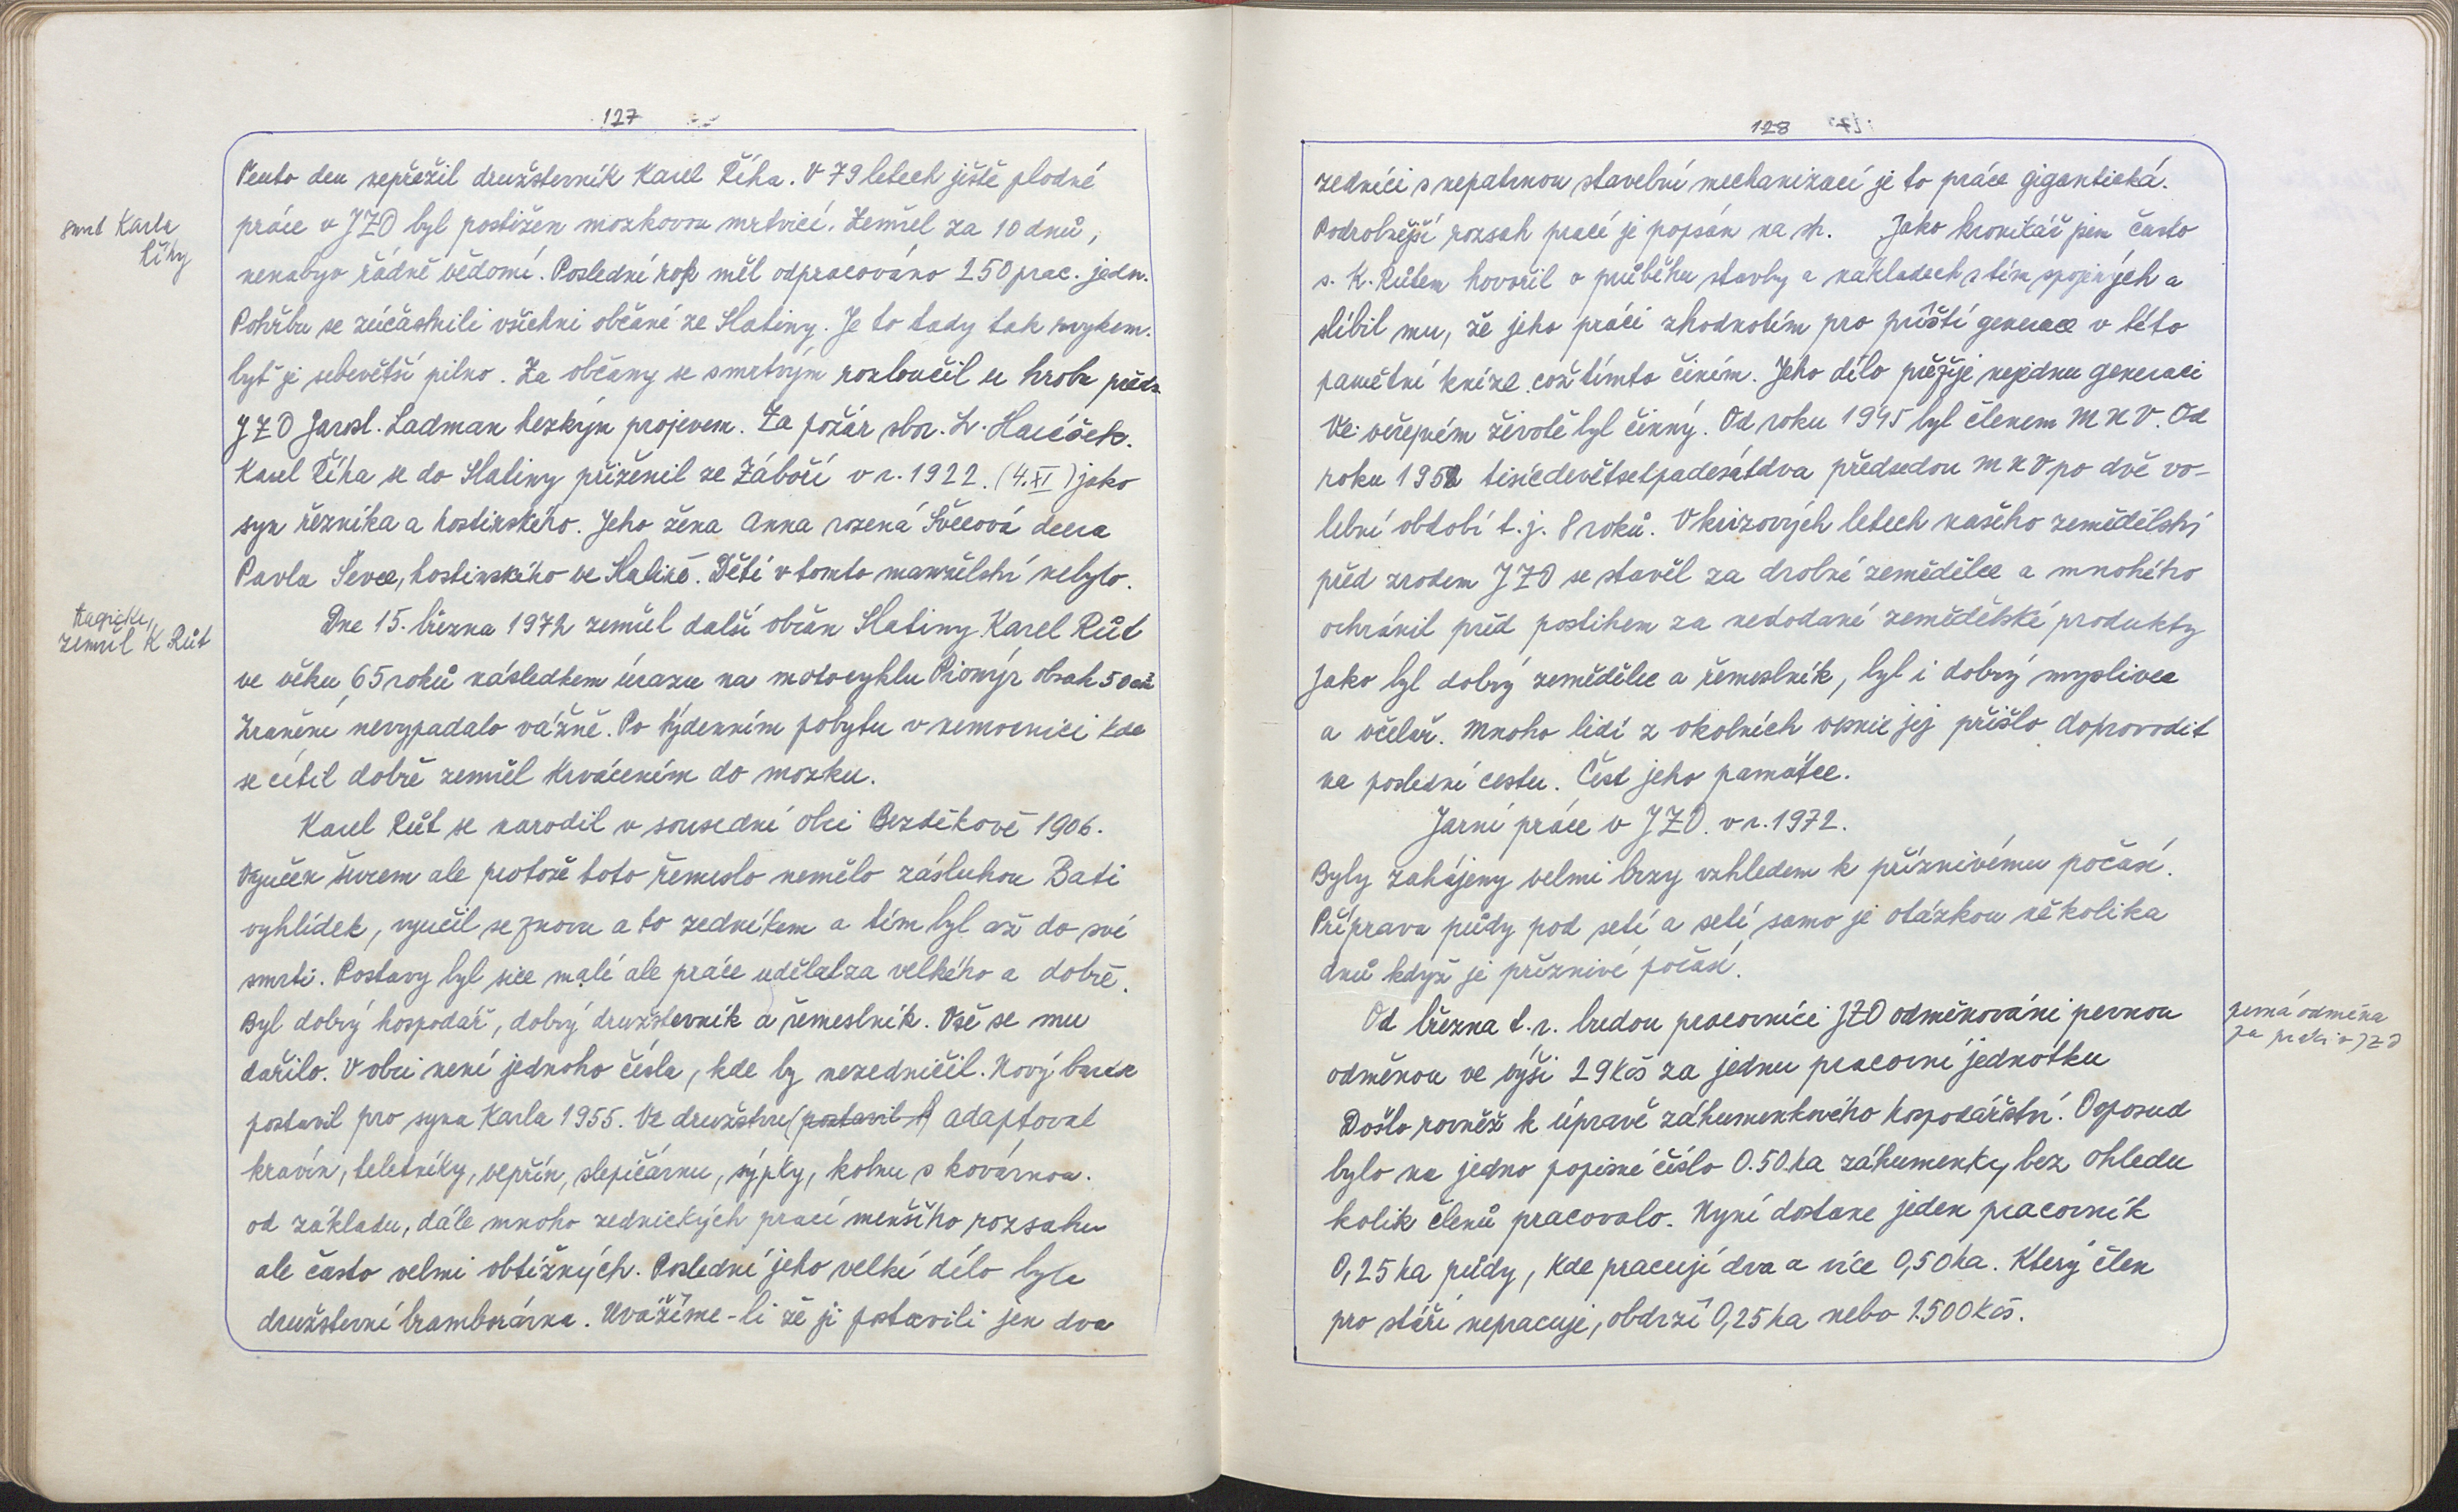 127
Tento den nepřežil družstevník Karel Říha. V 79 letech ještě plodné
smrt Karla
Říhy
práce v JZD byl postižen mozkovou mrtvicí. Zemřel za 10 dnů,
nenabyv řádně vědomí. Poslední rok měl odpracováno 250 prac. jedn.
Pohřbu se zúčastnili všichni občané ze Slatiny. Je to tady tak zvykem.
byť je sebevětší pilno. Za občany se s mrtvým rozloučil u hrobu předs.
JZD Jarosl. Ladman hezkým projevem. Za požár sbor. L. Havlíček.
Karel Říha se do Slatiny přiženil ze Záboří v r. 1922. (4.XI) jako
syn řezníka a hostinského. Jeho žena Anna rozená Ševcová dcera
Pavla Ševce, hostinského ve Slatině. Dětí v tomto manželství nebylo.
tragicky
zemřel K Růt
Dne 15. března 1972 zemřel další občan Slatiny Karel Růt
ve věku 65 roků následkem úrazu na motocyklu Pionýr obsah 50 cm
Zranění nevypadalo vážně. Po týdenním pobytu v nemocnici kde
se cítil dobře zemřel krvácením do mozku.
Karel Růt se narodil v sousední obci Bezděkově 1906.
Vyučen ševcem ale protože toto řemeslo nemělo zásluhou Bati
vyhlídek, vyučil se znovu a to zedníkem a tím byl až do své
smrti. Postavy byl sice malé ale práce udělal za velkého a dobře.
Byl dobrý hospodář, dobrý družstevník a řemeslník. Vše se mu
dařilo. V obci není jednoho čísla, kde by nezedničil. Nový barák
postavil pro syna Karla 1955. Ve družstvu (postavil) adaptoval
kravín, teletníky, vepřín, slepičárnu, sýpky, kolnu s kovárnou.
od základu, dále mnoho zednických prací menšího rozsahu
ale často velmi obtížných. Poslední jeho velké dílo byla
družstevní bramborárna. Uvážíme-li že ji postavili jen dva
128
zedníci s nepatrnou stavební mechanizací je to práce gigantická.
Podrobnější rozsah prací je popsán na str. Jako kronikář jsem často
s. K. Růtem hovořil o průběhu stavby a nákladech s tím spojených a
slíbil mu, že jeho práci zhodnotím pro příští generace v této
pamětní knize což tímto činím. Jeho dílo přežije nejednu generaci
Ve veřejném životě byl činný. Od roku 1945 byl členem MNV. Od
roku 1952 tisícdevětsetpadesátdva předsedou MNV po dvě vo-
lební období t.j. 8 roků. V krizových letech našeho zemědělství
před zrodem JZD se stavěl za drobné zemědělce a mnohého
ochránil před postihem za nedodané zemědělské produkty
Jako byl dobrý zemědělec a řemeslník, byl i dobrý myslivec
a včelař. Mnoho lidí z okolních vesnic jej přišlo doprovodit
na poslední cestu. Čest jeho památce.
Jarní práce v JZD. v r. 1972.
Byly zahájeny velmi brzy vzhledem k příznivému počasí.
Příprava půdy pod setí a setí samo je otázkou několika
dnů když je příznivé počasí.
Od března t.r. budou pracovníci JZD odměňováni pevnou
pevná odměna
za práci v JZD
odměnou ve výši 29 Kčs za jednu pracovní jednotku
Došlo rovněž k úpravě záhumenkového hospodářství. Doposud
bylo na jedno popisné číslo 0.50 ha záhumenky bez ohledu
kolik členů pracovalo. Nyní dostane jeden pracovník
0,25 ha půdy, kde pracují dva a více 0,50 ha. Který člen
pro stáří nepracuje, obdrží 0,25 ha nebo 1.500 Kčs.